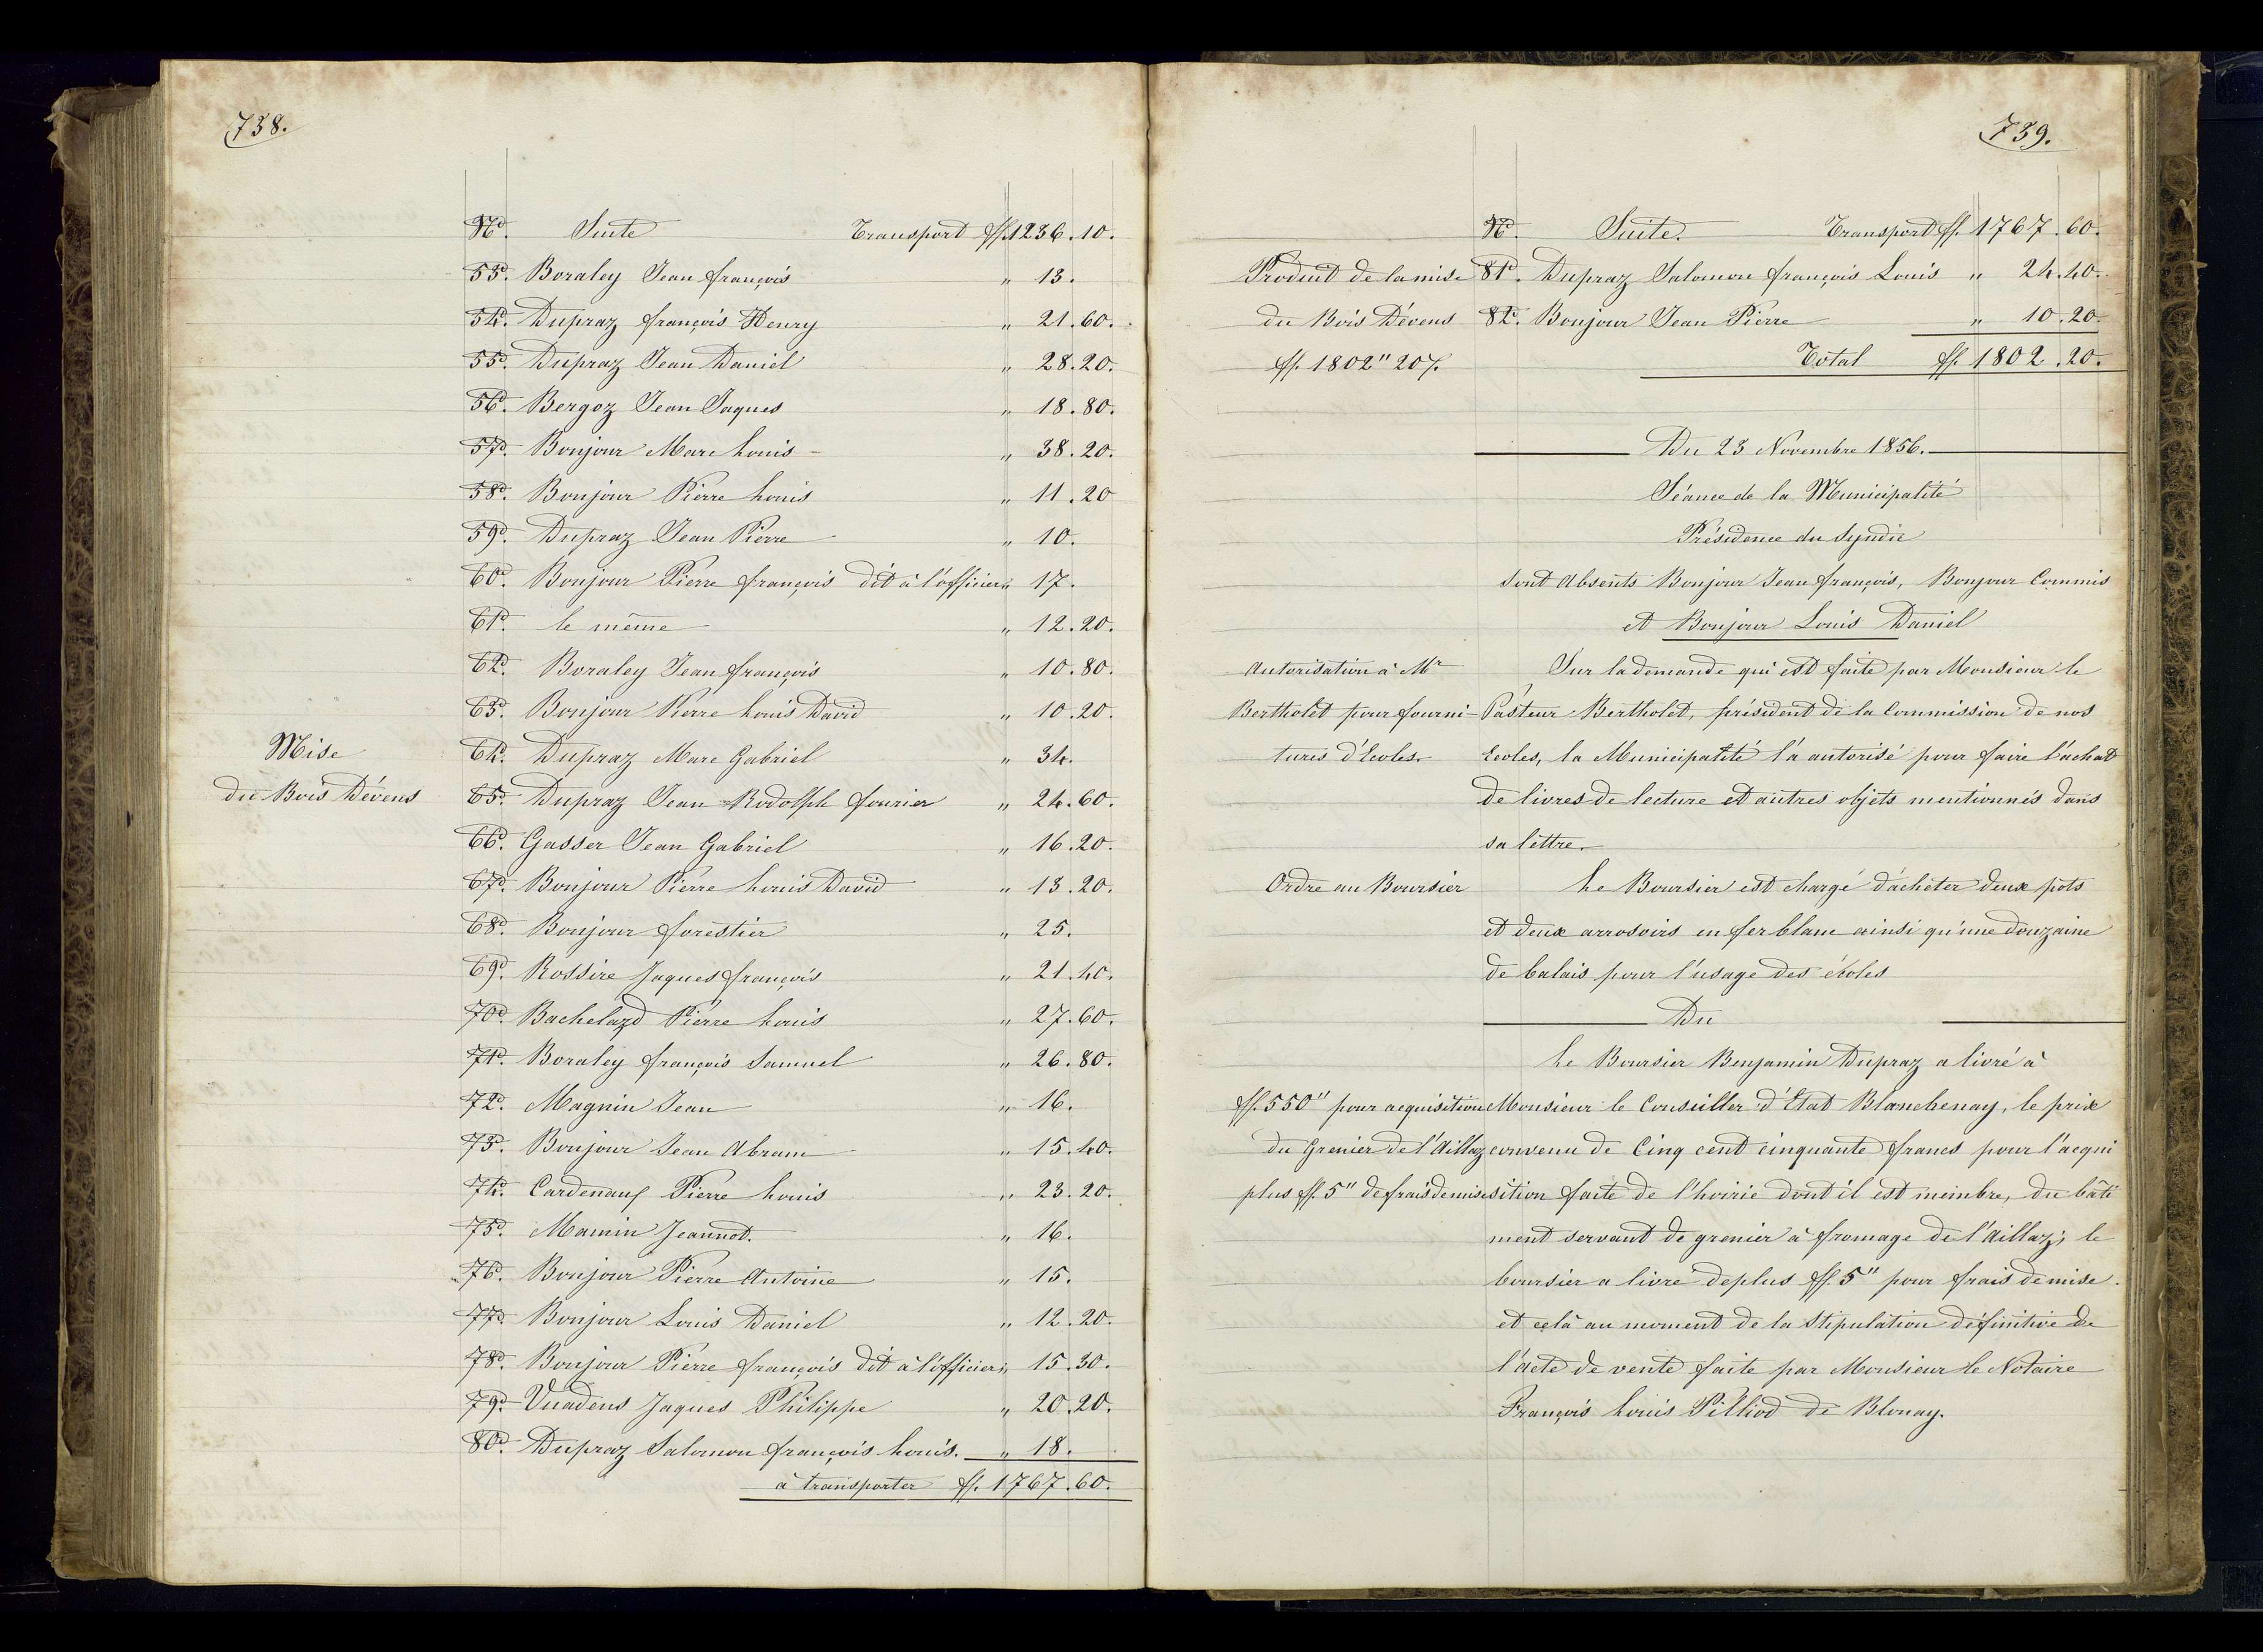 738.
N.º Suite Transport ff. 1236.10.
53º. Boraley Jean françois " 13.
54º. Dupraz françois Henry " 21.60.
55º. Dupraz Jean Daniel " 28.20.
56º. Bergoz Jean Jaques " 18.80.
57º. Bonjour Marc Louis " 38.20.
58º. Bonjour Pierre Louis " 11.20
59º. Dupraz Jean Pierre " 10.
60º. Bonjour Pierre françois dit à l'officier " 17.
61º. le même " 12.20.
62º. Boraley Jean françois " 10.80.
63º. Bonjour Pierre Louis David " 10.20.
Mise
du Bois Dévens
64º. Dupraz Marc Gabriel " 34.
65º. Dupraz Jean Rodolph fourier " 24.60.
66º. Gasser Jean Gabriel " 16.20.
67º. Bonjour Pierre Louis David " 13.20.
68º. Bonjour forestier " 25.
69º. Rossire Jaques françois " 21.40.
70º. Bachelazd Pierre Louis " 27.60.
71º. Boraley françois Samuel " 26.80.
72º. Magnin Jean " 16.
73º. Bonjour Jean Abram " 15.40.
74º. Cardenaux Pierre Louis " 23.20.
75º. Mamin Jeannot. " 16.
76º. Bonjour Pierre Antoine " 15.
77º. Bonjour Louis Daniel " 12.20.
78º. Bonjour Pierre françois dit à l'officier " 15.30.
79º. Vuadens Jaques Philippe " 20.20.
80º. Dupraz Salomon françois Louis. " 18.
à transporter ff. 1767.60.
739.
N.º Suite. Transport ff. 1767.60.
Produit de la mise
du Bois Dévens
ff. 1802" 20/.
81º. Dupraz Salomon françois Louis " 24.40.
82º. Bonjour Jean Pierre " 10.20
Total ff. 1802.20.
Du 23 Novembre 1856.
Séance de la Municipalité
Présidence du Syndic
Sont Absents Bonjour Jean françois, Bonjour Commis
et Bonjour Louis Daniel
Autorisation à Mr
Bertholet pour fourni-
tures d'Ecoles.
Sur la demande qui est faite par Monsieur le
Pasteur Bertholet, président de la Commission de nos
Ecoles, la Municipalité l'a autorisé pour faire l'achat
de livres de lecture et autres objets mentionnés dans
sa lettre.
Ordre au Boursier
Le Boursier est chargé d'acheter deux pots
et deux arrosoirs en fer blanc ainsi qu'une douzaine
de balais pour l'usage des écoles
Du
Le Boursier Benjamin Dupraz a livré à
ff. 550" pour acquisition
du Grenier de l'Aillaz
plus ff. 5" de frais de mise
Monsieur le Conseiller d'Etat Blanchenay, le prix
convenu de Cinq cent cinquante francs pour l'acqui
sition faite de l'hoirie dont il est membre, du bâti
ment servant de grenier à fromage de l'Aillaz; le
boursier a livré deplus ff. 5" pour frais de mise.
et celà au moment de la Stipulation définitive de
l'acte de vente faite par Monsieur le Notaire
François Louis Pilliod de Blonay.